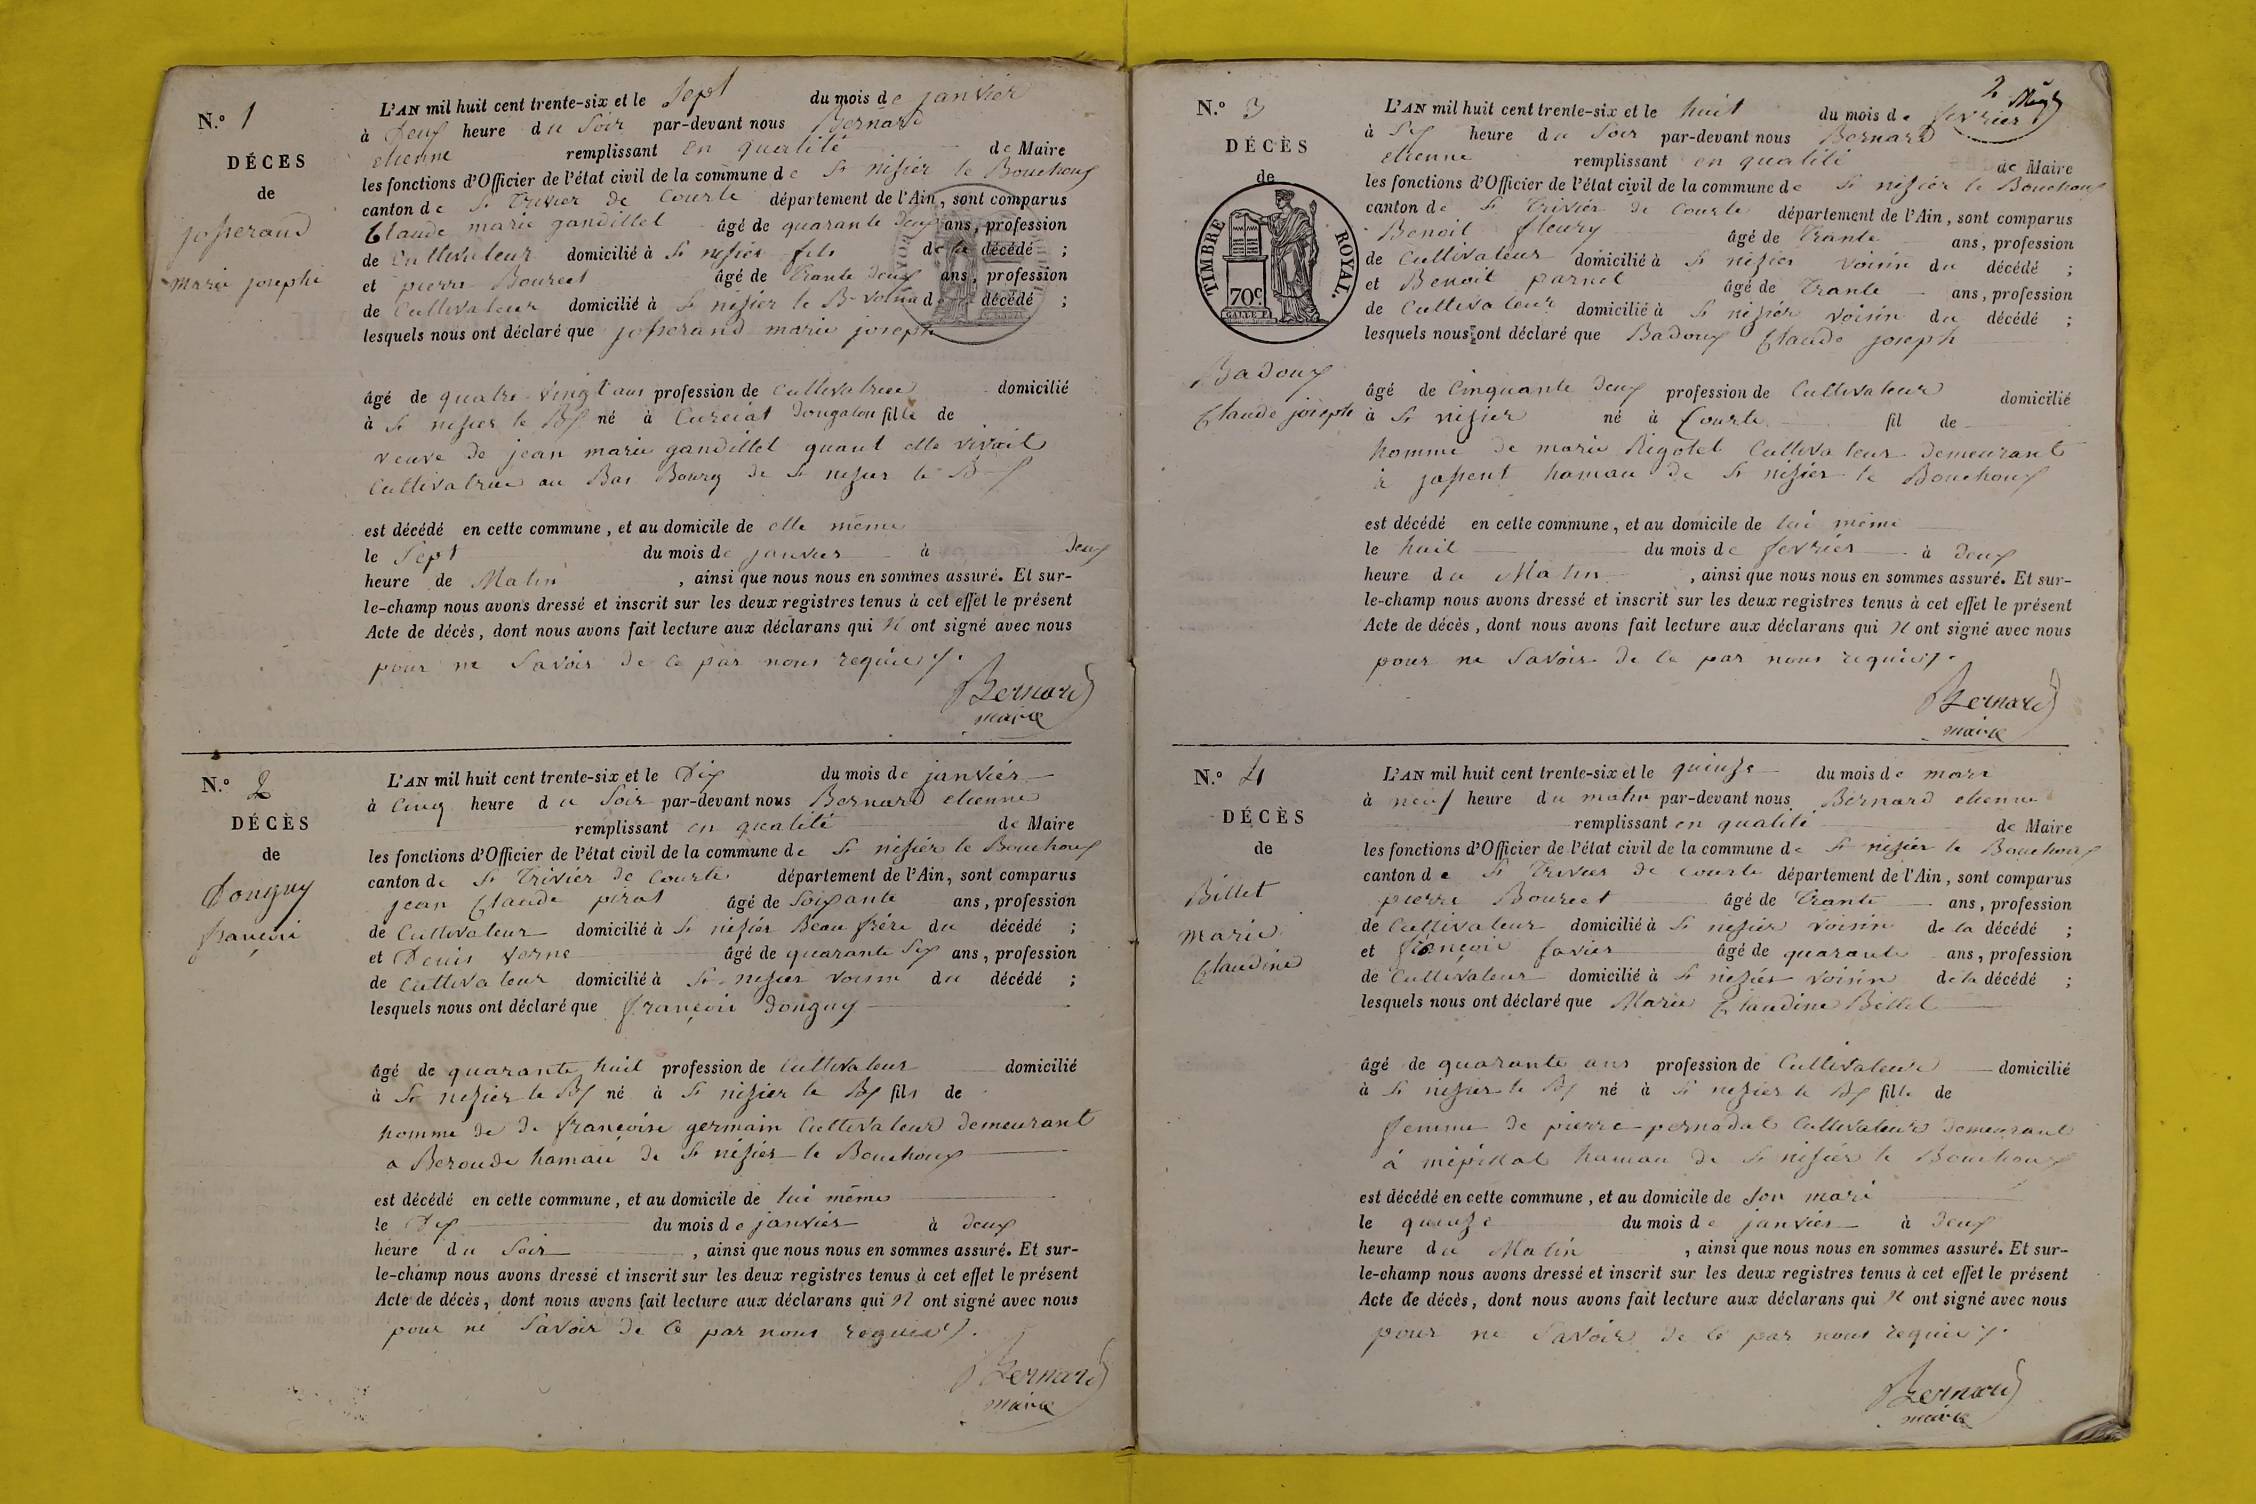 N.º 1
DÉCES
de
josserand
marie josephe
L'AN mil huit cent trente-six et le sept du mois de janvier
à Deux heure du Soir par-devant nous Bernard
etienne remplissant en quertité de Maire
les fonctions d'Officier de l'état civil de la commune de St nisier le Bouchoux
canton de St Trivier de Courte département de l'Ain, sont comparus
Claude marie gandillet âgé de quarante deux ans, profession
de Cultivateur domicilié à St nisier fils de la décédé ;
et pierre Bourcet âgé de trante deux ans, profession
de Cultivateur domicilié à St nisier le B voisin d décédé ;
lesquels nous ont déclaré que josserand marie joseph
âgé de quatre vingt ans profession de Cultivatrice domicilié
à St nisier le Bx né à Curciat dongalon fille de
veuve de jean marie gandillet quant elle vivait
Cultivatrice au Bas Bourg de St nisier le B x
est décédé en cette commune, et au domicile de elle même
le Sept du mois de janvier à Deux
heure de Matin , ainsi que nous nous en sommes assuré. Et sur-
le-champ nous avons dressé et inscrit sur les deux registres tenus à cet effet le présent
Acte de décès, dont nous avons fait lecture aux déclarans qui N ont signé avec nous
pour ne Savoir de ce par nous requis /.
Bernard
maire
N.º 2
DÉCÈS
de
Donguy
françois
L'AN mil huit cent trente-six et le Dix du mois de janvier
à Cinq heure du Soir par-devant nous Bernard etienne
remplissant en qualité de Maire
les fonctions d'Officier de l'état civil de la commune de St nisier le Bouchoux
canton de St Trivier de Courte département de l'Ain, sont comparus
jean Claude pirat âgé de Soixante ans, profession
de Cultivateur domicilié à St nisier Beau frère du décédé ;
et Denis verne âgé de quarante Six ans, profession
de Cultivateur domicilié à St nisier voisin du décédé ;
lesquels nous ont déclaré que françois donguy
âgé de quarante huit profession de Cultivateur domicilié
à St nisier le Bx né à St nisier le Bx fils de
homme de de françoise germain Cultivateur demeurant
a Beroude hamau de St nisier le Bouchoux
est décédé en cette commune, et au domicile de lui même
le Dix du mois de janvier à deux
heure du Soir , ainsi que nous nous en sommes assuré. Et sur-
le-champ nous avons dressé et inscrit sur les deux registres tenus à cet effet le présent
Acte de décès, dont nous avons fait lecture aux déclarans qui N ont signé avec nous
pour ne Savoir de ce par nous requis /.
Bernard
maire
2
N.º 3
DÉCÈS
de
TIMBRE ROYAL.
70c
Badoux
Claude joseph
L'AN mil huit cent trente-six et le huit du mois de fevrier
à Six heure du Soir par-devant nous Bernard
etienne remplissant en qualité de Maire
les fonctions d'Officier de l'état civil de la commune de St nisier le Bouchoux
canton de St Trivier de Courte département de l'Ain, sont comparus
Benoit fleury âgé de trante ans, profession
de Cultivateur domicilié à St nisier voisin du décédé ;
et Benoit parnet âgé de Trante ans, profession
de Cultivateur domicilié à St nisier voisin du décédé ;
lesquels nous ont déclaré que Badoux Claude joseph
âgé de Cinquante deux profession de Cultivateur domicilié
à St nisier né à Courte fil de
homme de marie Rigotet Cultivateur demeurant
à jassent hamau de St nisier le Bouchoux
est décédé en cette commune, et au domicile de lui même
le huit du mois de fevrier à deux
heure du Matin , ainsi que nous nous en sommes assuré. Et sur-
le-champ nous avons dressé et inscrit sur les deux registres tenus à cet effet le présent
Acte de décès, dont nous avons fait lecture aux déclarans qui N ont signé avec nous
pour ne Savoir de ce par nous requis /.
Bernard
maire
N.º 4
DÉCÈS
de
Billet
marie
Claudine
L'AN mil huit cent trente-six et le quinze du mois de mars
à neuf heure du matin par-devant nous Bernard etienne
remplissant en qualité de Maire
les fonctions d'Officier de l'état civil de la commune de St nisier le Bouchoux
canton de St Trivier de Courte département de l'Ain, sont comparus
pierre Bourcet âgé de trante ans, profession
de Cultivateur domicilié à St nisier voisin de la décédé ;
et françois favier âgé de quarante ans, profession
de Cultivateur domicilié à St nisier voisin de la décédé ;
lesquels nous ont déclaré que Marie Claudine Billet
âgé de quarante ans profession de Cultivateur domicilié
à St nisier le Bx né à St nisier le Bx fille de
femme de pierre pernodat Cultivateur demeurant
à hamau de St nisier le Bouchoux
est décédé en cette commune, et au domicile de Son mari
le quinze du mois de janvier à deux
heure du Matin , ainsi que nous nous en sommes assuré. Et sur-
le-champ nous avons dressé et inscrit sur les deux registres tenus à cet effet le présent
Acte de décès, dont nous avons fait lecture aux déclarans qui N ont signé avec nous
pour ne Savoir de ce par nous requis /.
Bernard
maire